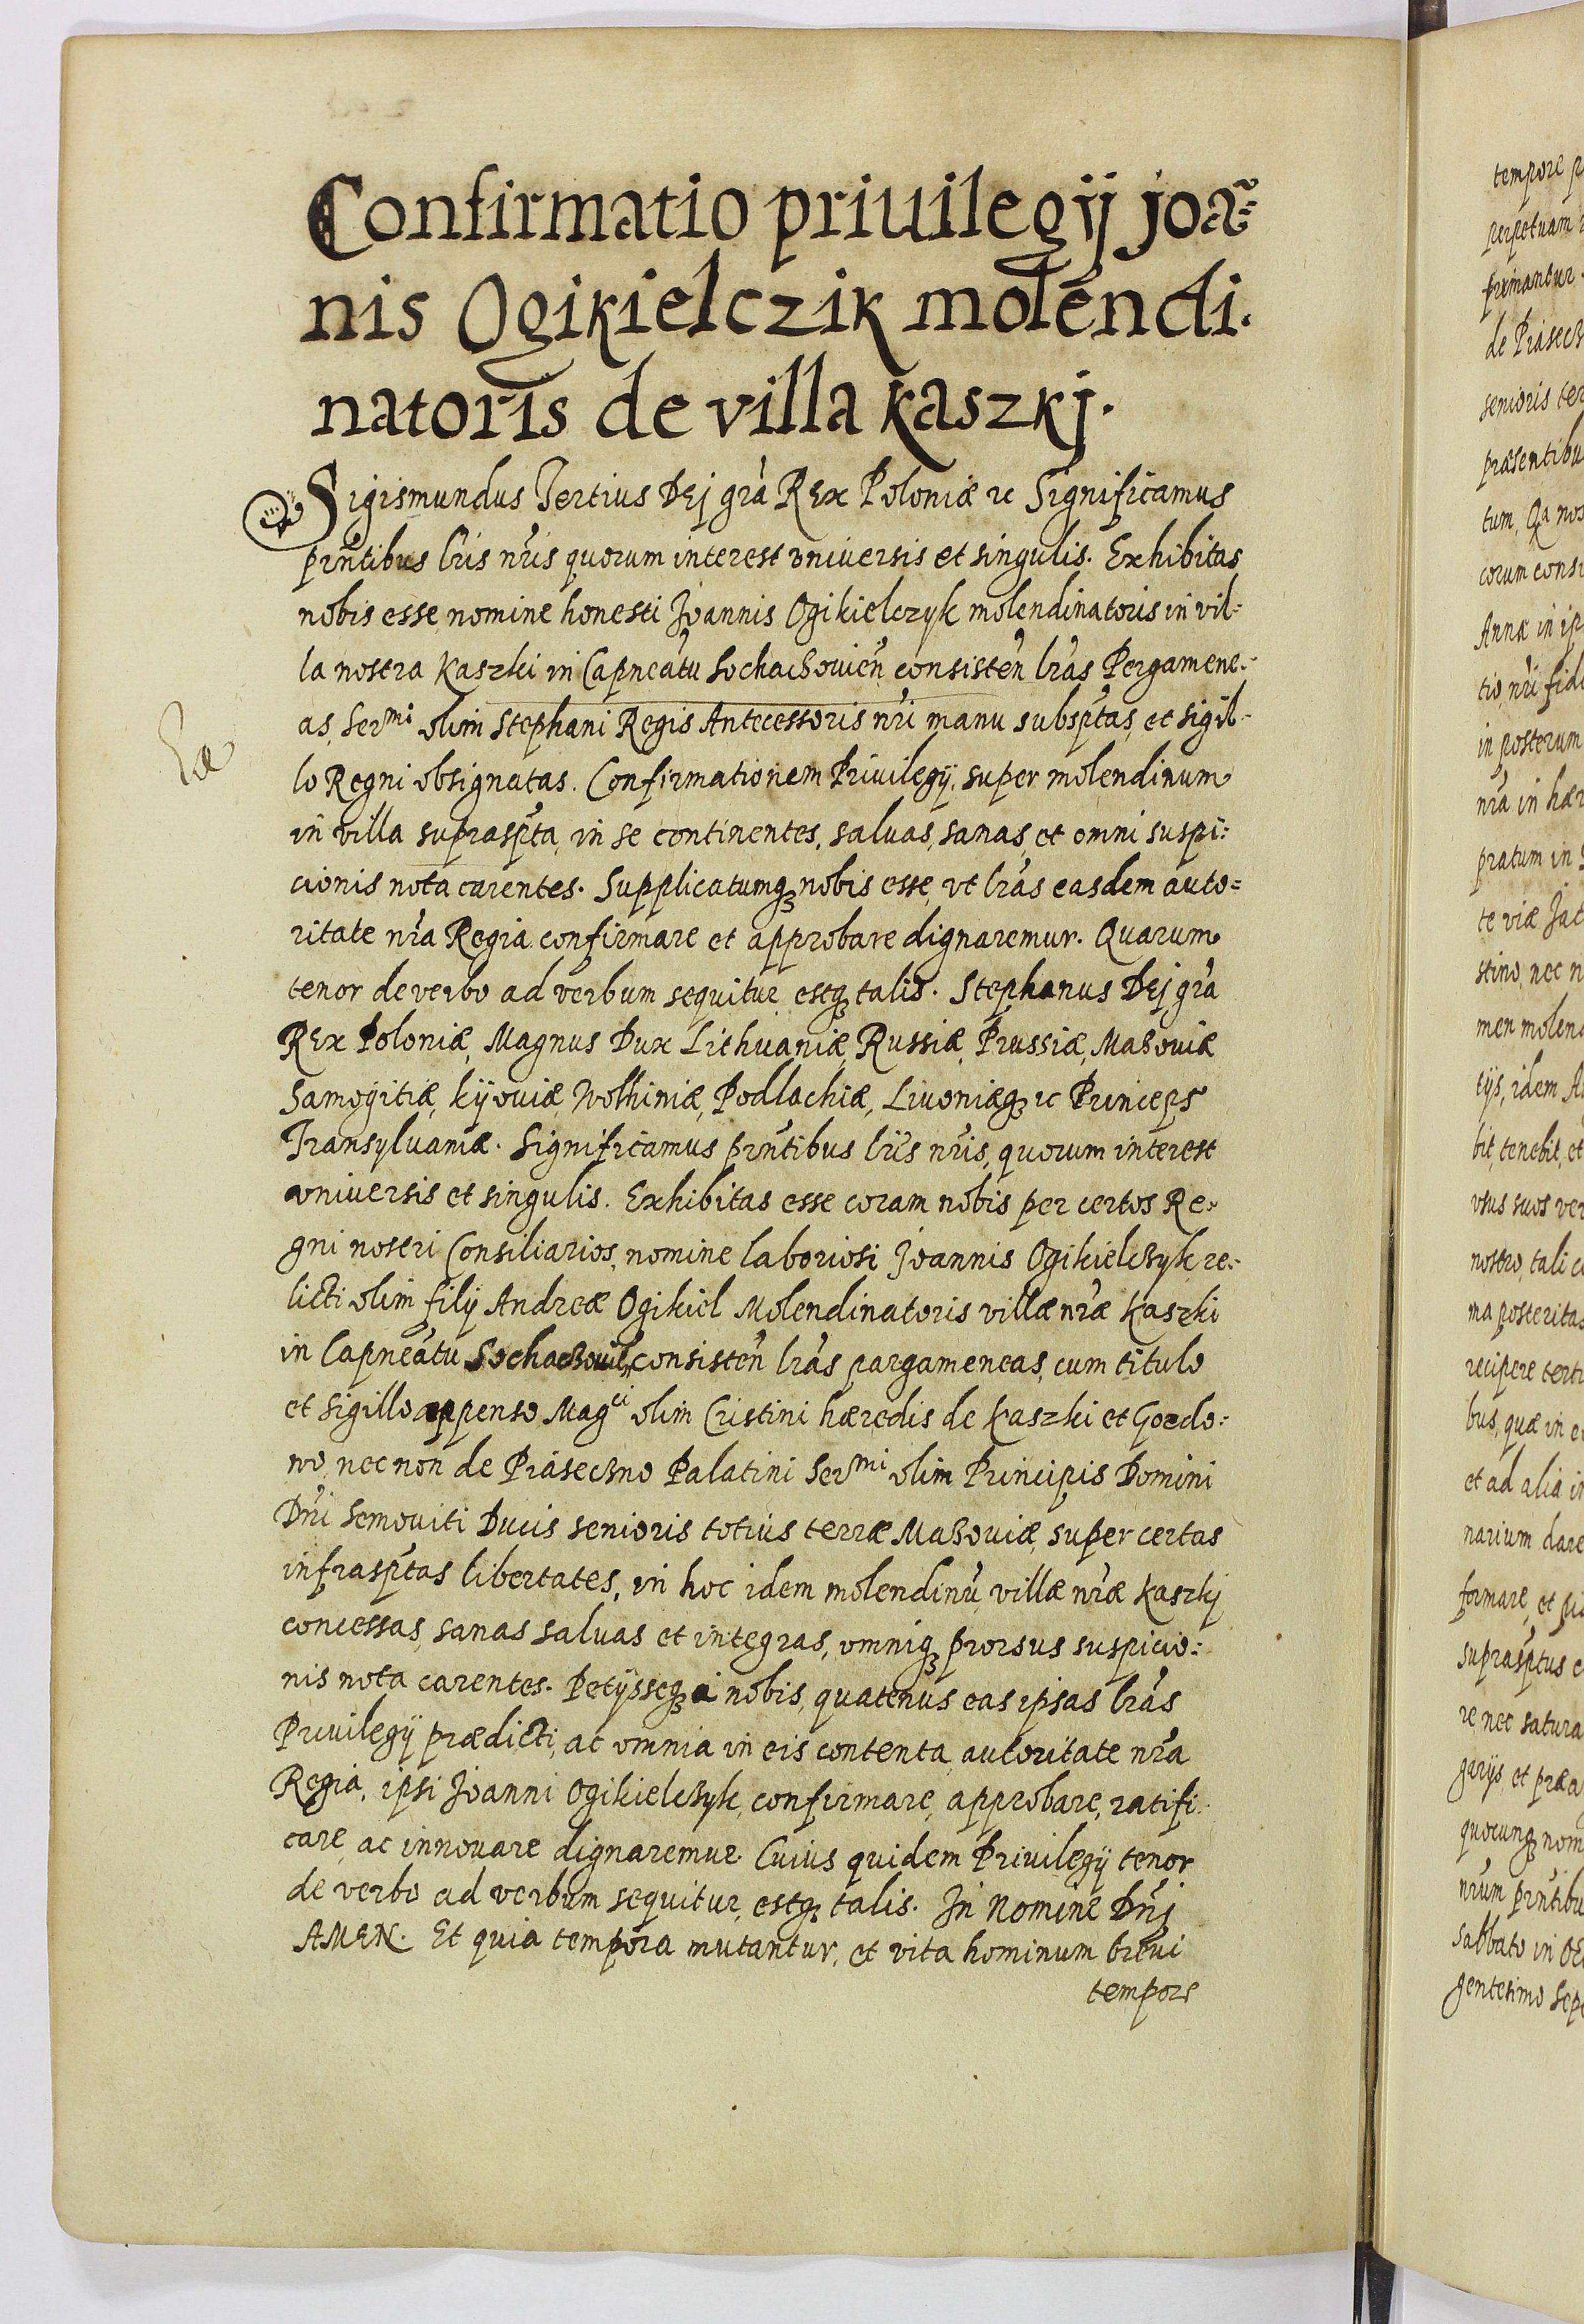 Confirmatio priuilegij Joã=
nis Ogikielczik molendi.
natoris de villa Kaszkj.
Sigismundus Tertius Dej grã Rex Poloniæ &c Significamus
pr̃ntibus lr̃is nr̃is quorum interest vniuersis et singulis. Exhibitas
nobis esse nomine honesti Joannis Ogikielczyk molendinatoris in vil=
la nostra Kaszki in Capneãtu Sochaczouien̄ consisten̄ lr̃as Pergamene=
as, Serᵐⁱ olim Stephani Regis Antecessoris nr̃i manu subsp̃tas, et sigil=
lo Regni obsignatas. Confirmationem Priuilegij, super molendinum
in villa suprasp̃ta, in se continentes, saluas, sanas, et omni suspi=
cionis nota carentes. Supplicatumqꝫ nobis esse, vt lr̃as easdem auto=
ritate nr̃a Regia confirmare et approbare dignaremur. Quarum
tenor de verbo ad verbum sequitur estqꝫ talis. Stephanus Dej grã
Rex Poloniæ, Magnus Dux Lithuaniæ, Russiæ, Prussiæ, Mazouiæ
Samogitiæ, Kijouiæ, Wolhiniæ, Podlachiæ, Liuoniæqꝫ &c Princeps
Transyluaniæ. Significamus pr̃ntibus lr̃is nr̃is, quorum interest
vniuersis et singulis. Exhibitas esse coram nobis per certos Re=
gni nostri Consiliarios, nomine laboriosi Joannis Ogikielczyk re=
licti olim filij Andreæ Ogikiel Molendinatoris villæ nr̃æ Kaszki
in Capneãtu Sochaczouien̄ consisten̄ lr̃as pargameneas, cum titulo
et sigillo appenso Magᶜⁱ olim Cristini hæredis de Kaszki et Gordo=
wo, nec non de Piaseczno Palatini Serᵐⁱ olim Principis Domini
Dn̄i Semouiti Ducis senioris totius terræ Mazouiæ, super certas
infrasp̃tas libertates, in hoc idem molendinū villæ nr̃æ Kaszkj
concessas, sanas saluas et integras, omniqꝫ prorsus suspicio=
nis nota carentes. Petijsseqꝫ a nobis, quatenus eas ipsas lr̃as
Priuilegij prædicti, ac omnia in eis contenta, autoritate nr̃a
Regia, ipsi Joanni Ogikielczyk, confirmare, approbare, ratifi=
care, ac innouare dignaremur. Cuius quidem Priuilegij tenor
de verbo ad verbum sequitur, estqꝫ talis. In Nomine Dn̄j
AMEN. Et quia tempora mutantur, et vita hominum breui
tempore
tempore
perpetuam
firmantur
de Piasecz
senioris ter
præsentibu
tum, Qa nos
corum consi
Annæ in ip
tio, nr̃i fid
in posterum
nr̃a in hær
pratum in
te viæ Jac
stino, nec n
men molen
tijs, idem A
bit, tenebit, et
vsus suos ver
nostro, tali c
ma posteritas
recipere terti
bus, quæ in e
et ad alia in
narium dare
formare, et pis
suprasp̃tus e
re nec satura
garijs, et præa
quocunqꝫ nom
nr̃um pr̃ntibu
Sabbato in Oc
gentesimo Sep